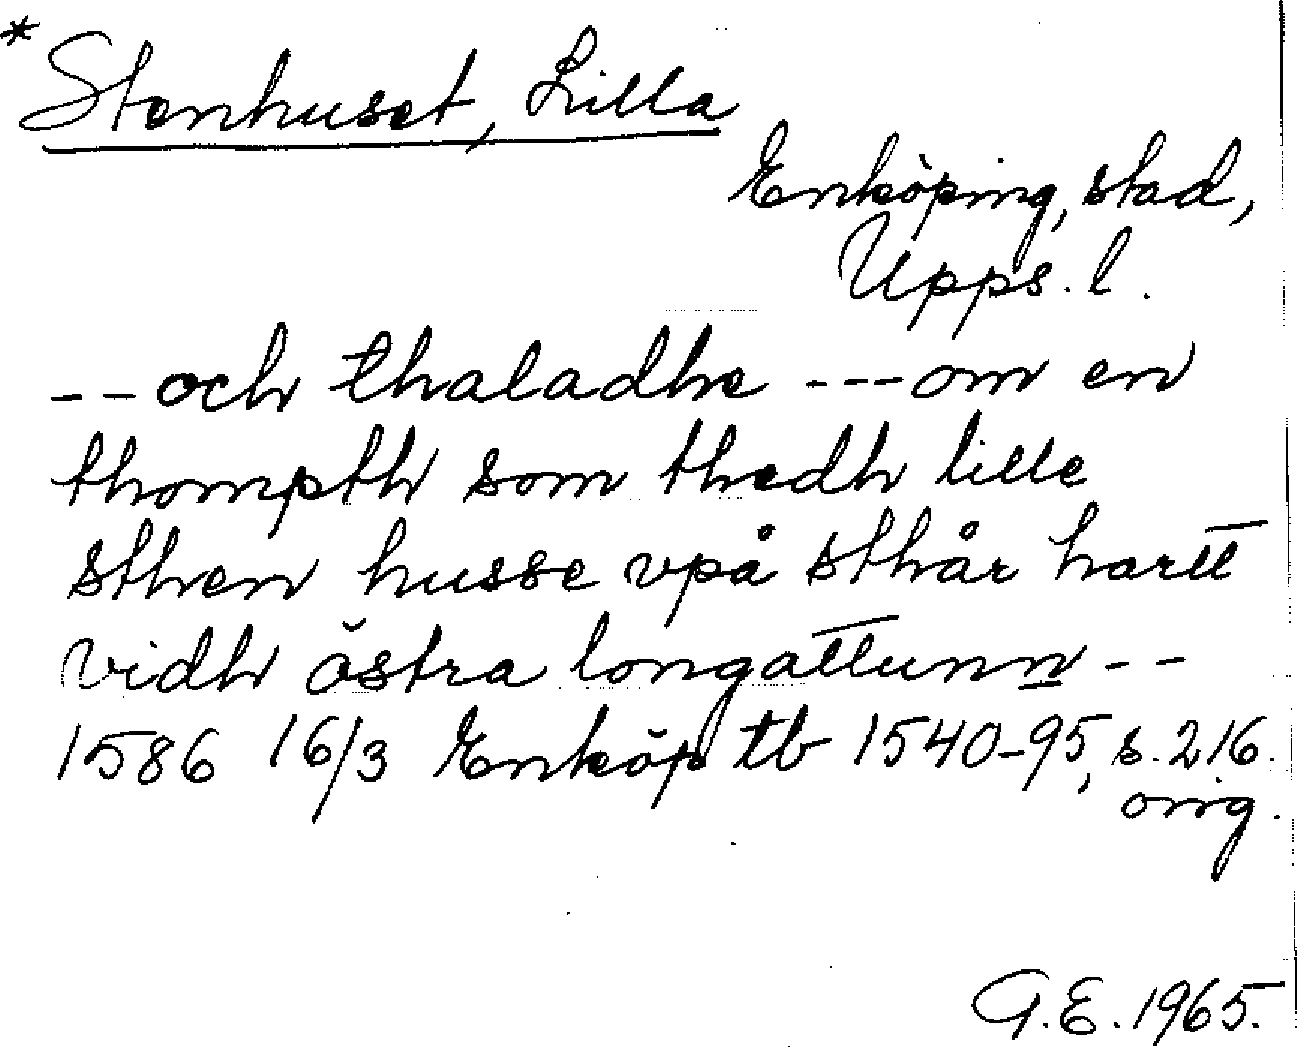 * Stenhuset, Lilla
Enköping, stad,
Upps. l.
-- och thaladhe --- om en
thompth som thedh lille
sthen husse vpå sthår hartt
vidh östra longattunn --
1586 16/3 Enköp tb 1540-95, s. 216.
orig.
G.E. 1965.